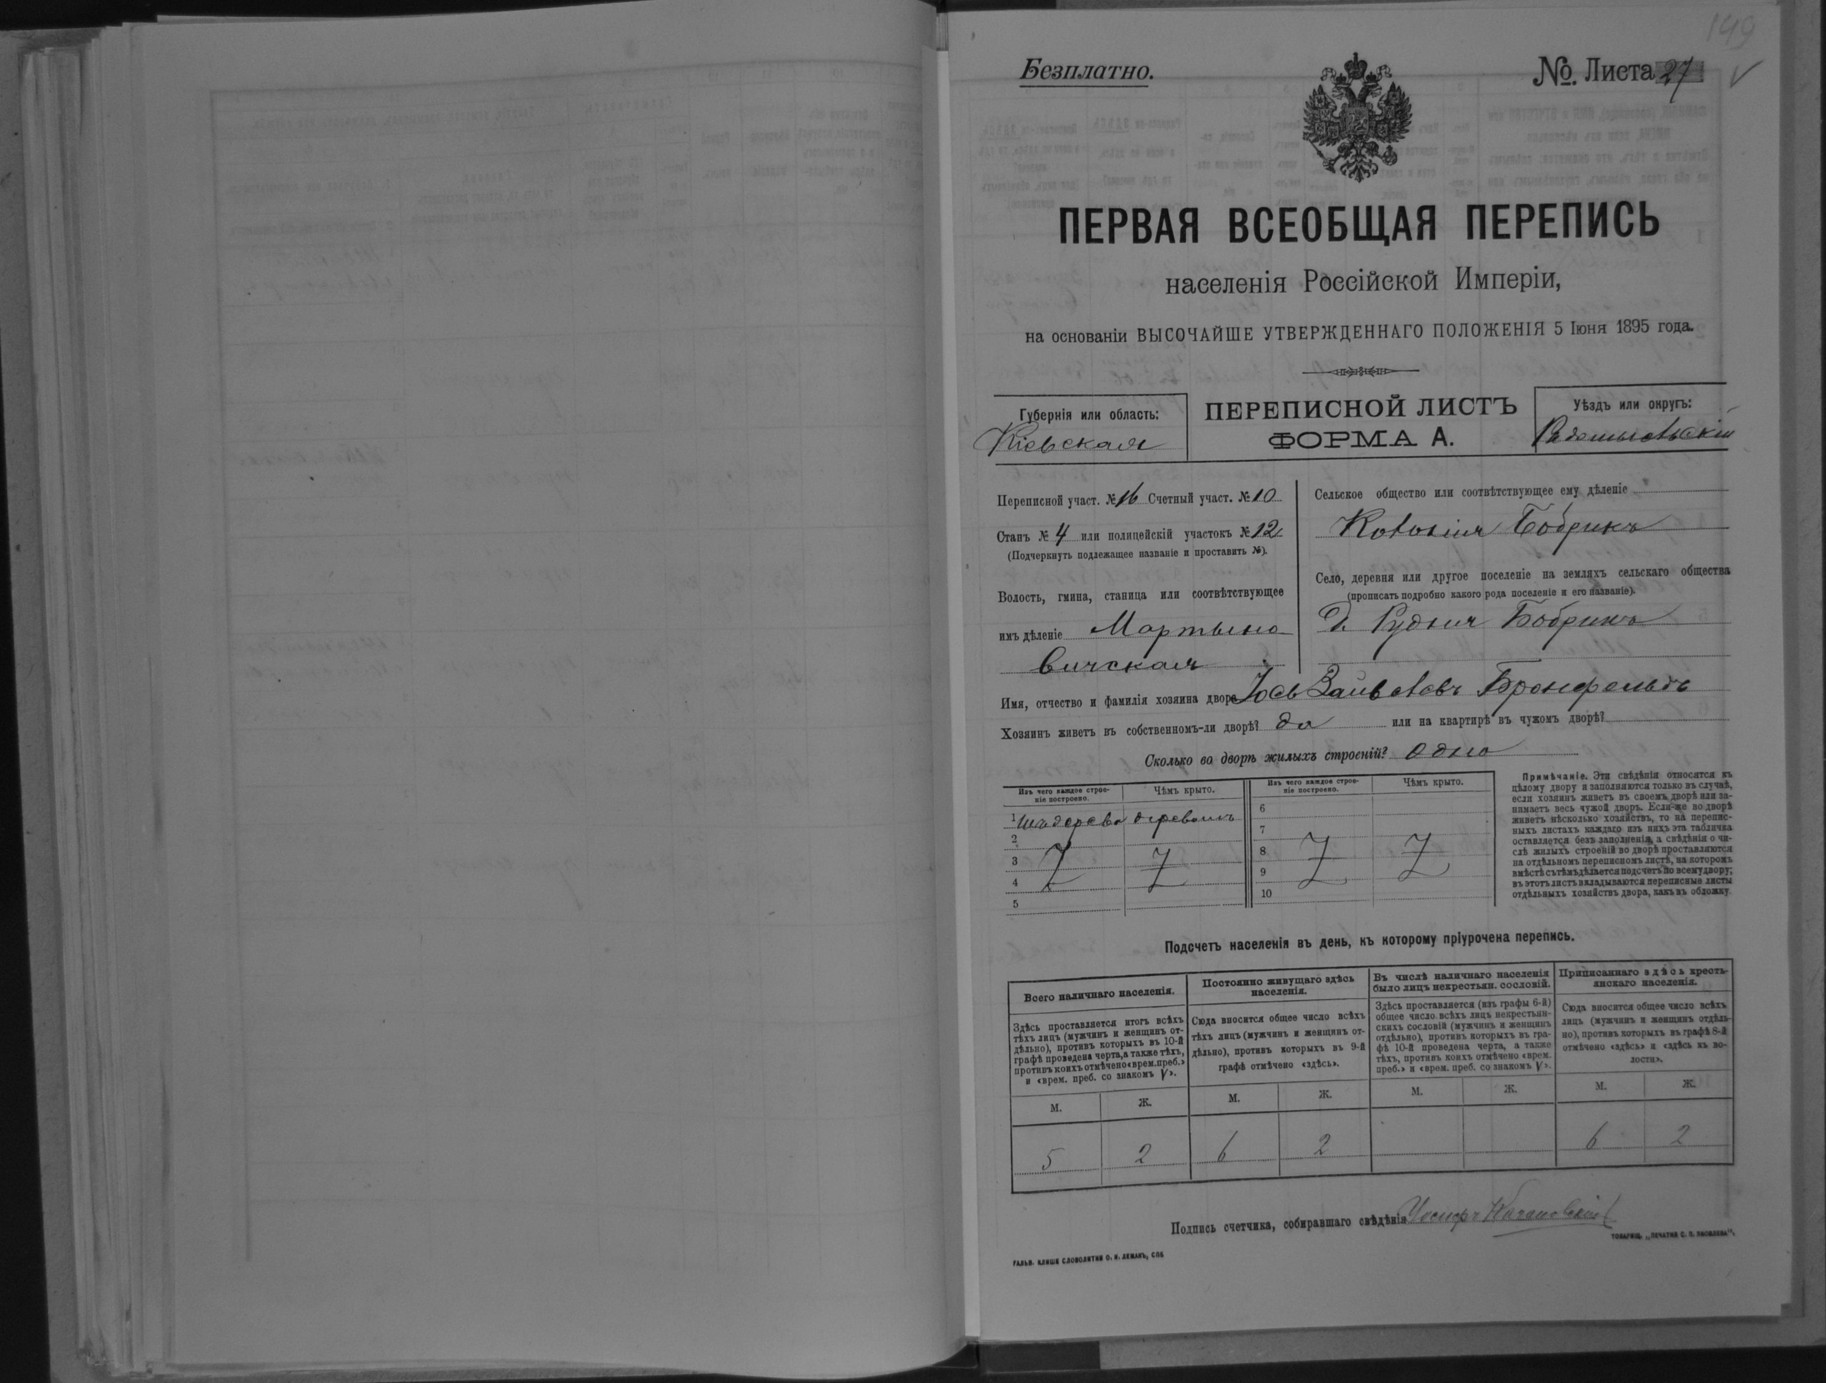 149
Безплатно.
№ Листа 27
ПЕРВАЯ ВСЕОБЩАЯ ПЕРЕПИСЬ
населенія Россійской Имперіи,
на основаніи ВЫСОЧАЙШЕ УТВЕРЖДЕННАГО ПОЛОЖЕНІЯ 5 Іюня 1895 года.
Губернія или область:
Кіевская
ПЕРЕПИСНОЙ ЛИСТЪ
ФОРМА А.
Уѣздъ или округъ:
Радомысльскій
Переписной участ. № 16 Счетный участ. № 10
Станъ № 4 или полицейскій участокъ № 12
(Подчеркнуть подлежащее названіе и проставить №).
Волость, гмина, станица или соотвѣтствующее
имъ дѣленіе Мартыно
вичская
Сельское общество или соотвѣтствующее ему дѣленіе
Колонія Бобрикъ
Село, деревня или другое поселеніе на земляхъ сельскаго общества
(прописать подробно какого рода поселеніе и его названіе).
Д. Рудня Бобрикъ
Имя, отчество и фамилія хозяина двора Іось Бронфельдъ
Хозяинъ живетъ въ собственномъ-ли дворѣ? да или на квартирѣ въ чужомъ дворѣ?
Сколько во дворѣ жилыхъ строеній? одно
Изъ чего каждое строе-
ніе построено.
Чѣмъ крыто.
Изъ чего каждое строе-
ніе построено.
Чѣмъ крыто.
1 изъ дерева деревомъ
2
3
4
5
6
7
8
9
10
Примѣчаніе. Эти свѣдѣнія относятся къ
цѣлому двору и заполняются только въ случаѣ,
если хозяинъ живетъ въ своемъ дворѣ или за-
нимаетъ весь чужой дворъ. Если-же во дворѣ
живетъ нѣсколько хозяйствъ, то на перепис-
ныхъ листахъ каждаго изъ нихъ эта табличка
оставляется безъ заполненія, а свѣдѣнія о чи-
слѣ жилыхъ строеній во дворѣ проставляются
на отдѣльномъ переписномъ листѣ, на которомъ
вмѣстѣ съ тѣмъ дѣлается подсчетъ по всему двору;
въ этотъ листъ вкладываются переписные листы
отдѣльныхъ хозяйствъ двора, какъ въ обложку.
Подсчетъ населенія въ день, къ которому пріурочена перепись.
Всего наличнаго населенія.
Здѣсь проставляется итогъ всѣхъ
тѣхъ лицъ (мужчинъ и женщинъ от-
дѣльно), противъ которыхъ въ 10-й
графѣ проведена черта, а также тѣхъ,
противъ коихъ отмѣчено «врем. преб.»
и «врем. преб. со знакомъ V».
Постоянно живущаго здѣсь
населенія.
Сюда вносится общее число всѣхъ
тѣхъ лицъ (мужчинъ и женщинъ от-
дѣльно), противъ которыхъ въ 9-й
графѣ отмѣчено «здѣсь».
Въ числѣ наличнаго населенія
было лицъ некрестьян. сословій.
Здѣсь проставляется (изъ графы 6-й)
общее число всѣхъ лицъ некрестьян-
скихъ сословій (мужчинъ и женщинъ
отдѣльно), противъ которыхъ въ гра-
фѣ 10-й проведена черта, а также
тѣхъ, противъ коихъ отмѣчено «врем.
преб.» и «врем. преб. со знакомъ V».
Приписаннаго здѣсь кресть-
янскаго населенія.
Сюда вносится общее число всѣхъ
лицъ (мужчинъ и женщинъ отдѣль-
но), противъ которыхъ въ графѣ 8-й
отмѣчено «здѣсь» и «здѣсь къ во-
лости».
М. Ж. М. Ж. М. Ж. М. Ж.
5 2 6 2 6 2
Подпись счетчика, собиравшаго свѣдѣнія Іосифъ
ГАЛЬВ. КЛИШЕ СЛОВОЛИТНИ О. И. ЛЕМАНЪ, СПБ
ТОВАРИЩ. „ПЕЧАТНЯ С. П. ЯКОВЛЕВА".